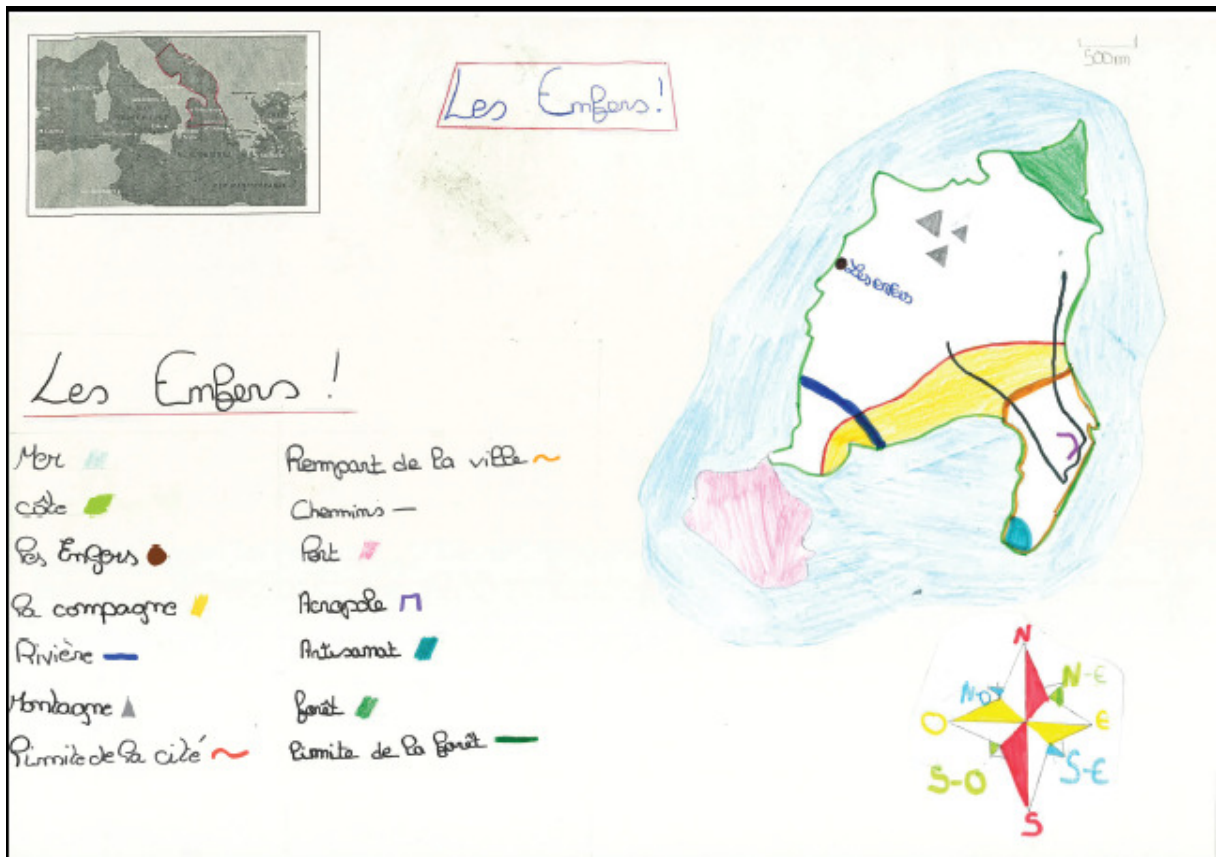 Les Enfers !
500m
Les enfers
Les Enfers !
Mer
côte
Les Enfers
la compagne
Rivière
Montagne
Limite de la cité
Rempart de la ville
Chemins
Port
Acropole
Artisanat
forêt
Limite de la forêt
N
N-O
N-E
O
E
S-O
S-E
S